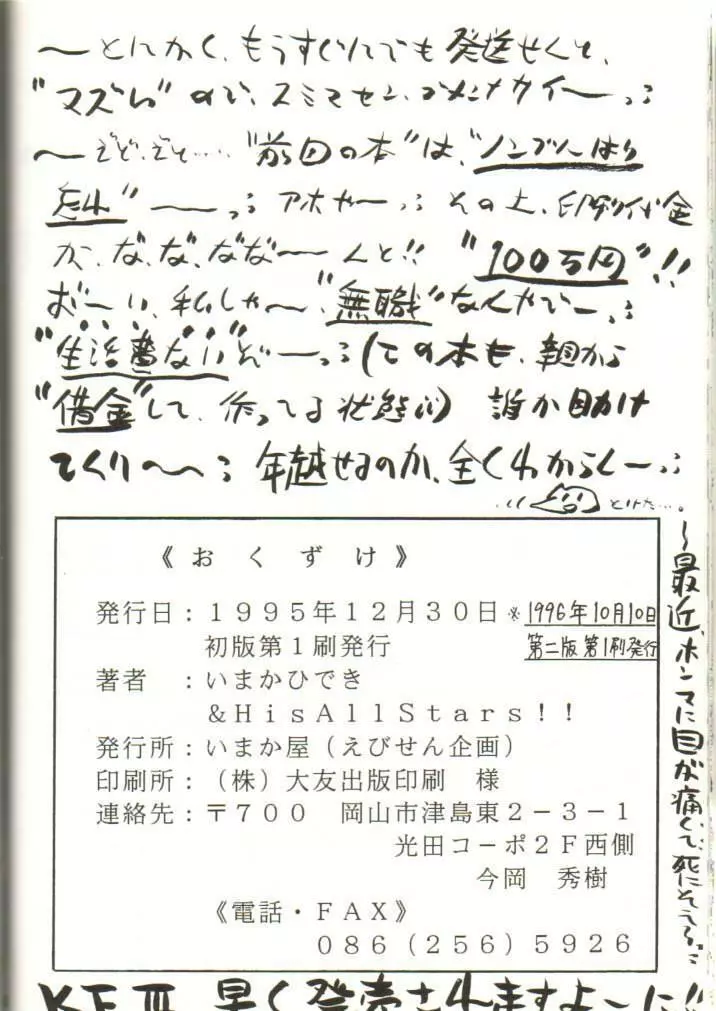 〜とにかく、もうすぐにでも発送せんと、
"マズい"ので、スミマセン、ゴメンナサイ〜っ；
〜ぞぞ、ぞぞ…… "前回の本"は、"ノンブルはり
忘れ"――っ；アホやーっ；その上、印刷代金
が、な、な、なな〜んと!! "100万円"!!
お〜い、私しゃ〜、"無職"なんやで〜っ；
"生活費ない"ぞーっ；（この本も、親から
"借金"して、作ってる状態；；）誰か助け
てくり〜〜；年越せるのか、全くわからんーっ；
とけた…。
《おくずけ》
発行日：１９９５年１２月３０日 ※1996年10月10日
初版第１刷発行 第二版第1刷発行
著者　：いまかひでき
＆ＨｉｓＡｌｌＳｔａｒｓ！！
発行所：いまか屋（えびせん企画）
印刷所：（株）大友出版印刷　様
連絡先：〒７００　岡山市津島東２－３－１
光田コーポ２Ｆ西側
今岡　秀樹
《電話・ＦＡＸ》
０８６（２５６）５９２６
〜最近、ホンマに目が痛くて、死にそうっ；
KFⅢ 早く発売されますよーに!!